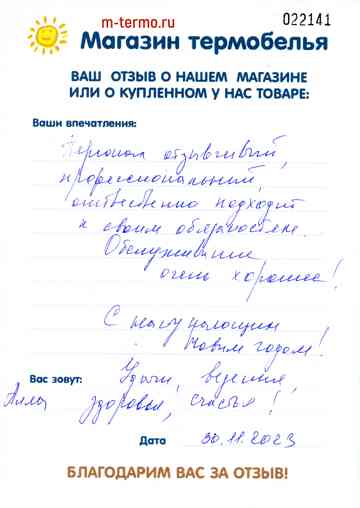 m-termo.ru
022141
Магазин термобелья
ВАШ ОТЗЫВ О НАШЕМ МАГАЗИНЕ
ИЛИ О КУПЛЕННОМ У НАС ТОВАРЕ:
Ваши впечатления:
Персонал отзывчивый,
профессиональный,
ответственно подходит
к своим обязаностям.
Обслуживание
очень хорошее!
С наступающим
Новым годом!
Удачи, везения,
Вас зовут:
Алла здоровья, счастья!
Дата 30.11.2023
БЛАГОДАРИМ ВАС ЗА ОТЗЫВ!